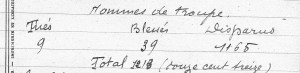 Hommes de troupe.
Tués Blessés Disparus
9 39 1165
Total 1213 (douze cent treize)